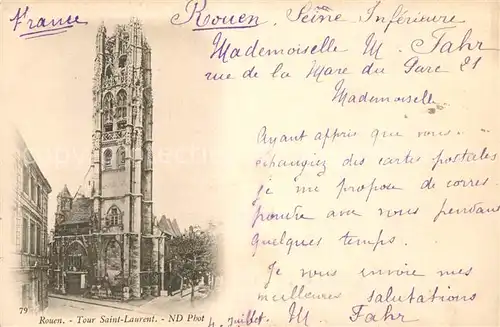 France
Rouen. Seine Inférieure
Mademoiselle M. Fahr
rue de la Mare du Parc 21
Mademoiselle
Ayant appris que vous
échangiez des cartes postales
je me propose de corres-
pondre avec vous pendant
quelques temps.
Je vous envoie mes
meilleures salutations
M. Fahr
4 Juillet
79
Rouen. - Tour Saint-Laurent. - ND Phot